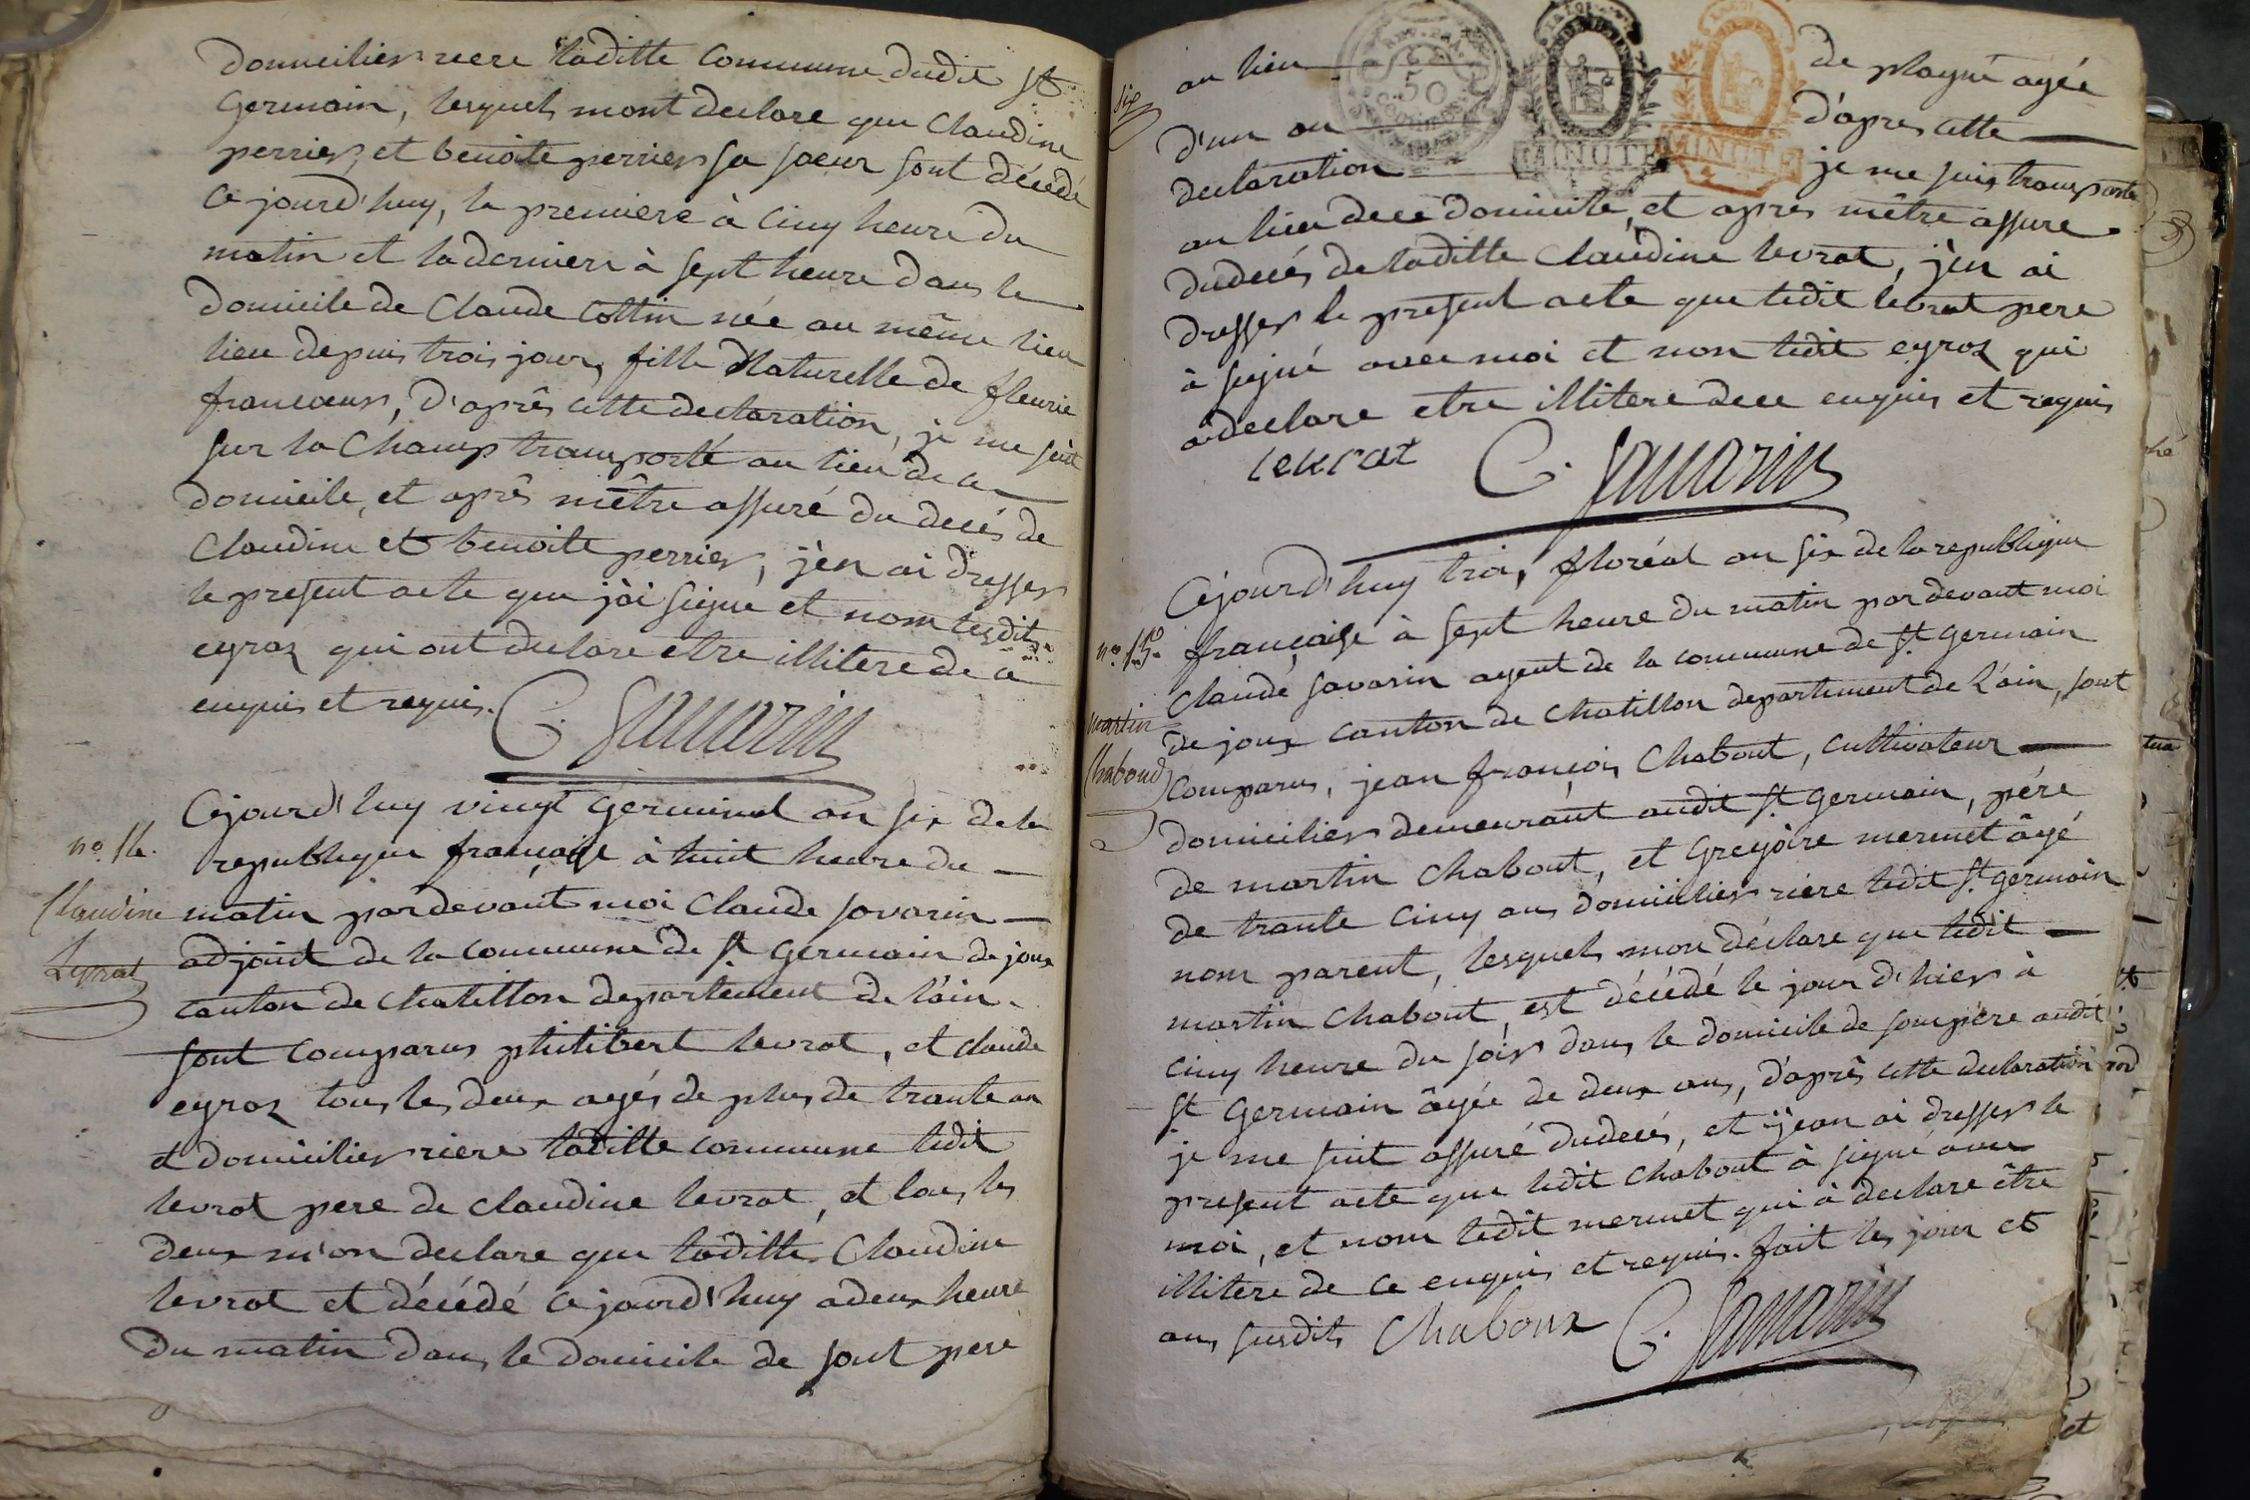 domicilier riere laditte commune dudit St
Germain, lesquels mont declare que Claudine
perrier, et benoite perrier sa soeur sont décédé
ce jourd'huy, la premiere à cinq heure du
matin et la derniere à sept heure dans le
domicile de Claude Cottin née au même lieu
lieu depuis trois jour, fille Naturelle de fleurie
francoeur, d'aprês cette declaration, je me suit
sur la Champ transporté au lieu de ce
domicile, et aprês mêtre assuré du decés de
Claudine et benoite perrier, j'en ai dresser
le present acte que j'ai signé et nom lesdits
eyraz qui ont declare etre illitere de ce
enquis et requis. C. Savarin
Cejourd'huy vingt Germinal an six de la
no. 14. republique française à huit heure du
Claudine matin pardevant moi Claude savarin
Levrat adjoint de la commune de St Germain de joux
canton de chatillon departement de l'ain
sont comparus philibert levrat, et claude
eyraz tous les deux agés de plus de trante an
et domicilier riere laditte commune ledit
levrat pere de claudine levrat, et tous les
deux m'on declare que laditte Claudine
levrat et décédé ce jourd'huy a deux heure
du matin dans le domicile de sont pere
six
au lieu de plagne agée
REP. FRA. 50
MINUTE
MINUTE
d'un an d'apres cette
declaration je me suis transporte
au lieu de ce domicile, et apres mêtre assure
du decés de laditte Claudine levrat, j'en ai
dresser le present acte que ledit levrat pere
à signé avec moi et non ledit eyraz qui
a declare etre illitere de ce enquis et requis
levrat C. Savarin
Cejourd'huy trois floréal an six de la republique
no. 15. française à sept heure du matin pardevant moi
Claude savarin agent de la commune de St Germain
martin de joux canton de chatillon departement de l'ain, sont
Chaboud comparus, jean françois Chabout, cultivateur
domicilier demeurant audit St Germain, pére
de martin Chabout, et Gregoire mermet âgé
de trante cinq ans domicilier riere ledit St Germain
nom parent, lesquels mon déclare que ledit
martin Chabout, est décédé le jour d'hier à
cinq heure du soir dans le domicile de som pére audit
St Germain âgée de deux ans, d'aprês cette declaration
je me suit assuré du decés, et j'ean ai dresser le
present acte que ledit Chabout à signé avec
moi, et nom ledit mermet qui à declare être
illitere de ce enquis et requis. fait les jour et
ans susdits Chaboux C. Savarin